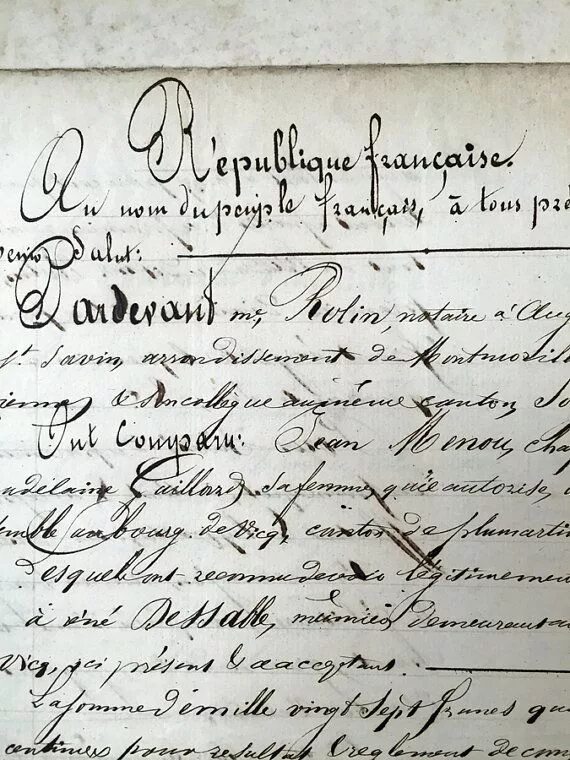 République française.
Au nom du peuple français, à tous pré
Salut:
Pardevant me, Rolin, notaire à Aug
St. Savin, arrondissement de Montmorill
& son collègue au même canton, So
Ont Comparu: Jean Menou, cha
adélaine Caillard, sa femme, qu'il autorise,
emble au bourg de Vicq, canton de plumartin
desquels ont reconnu devoir légitimemen
à réné Dessable, demeurant au
Vicq, ici présent & acceptant.
La somme de mille vingt sept francs qu
centimes pour resultat & règlement de com